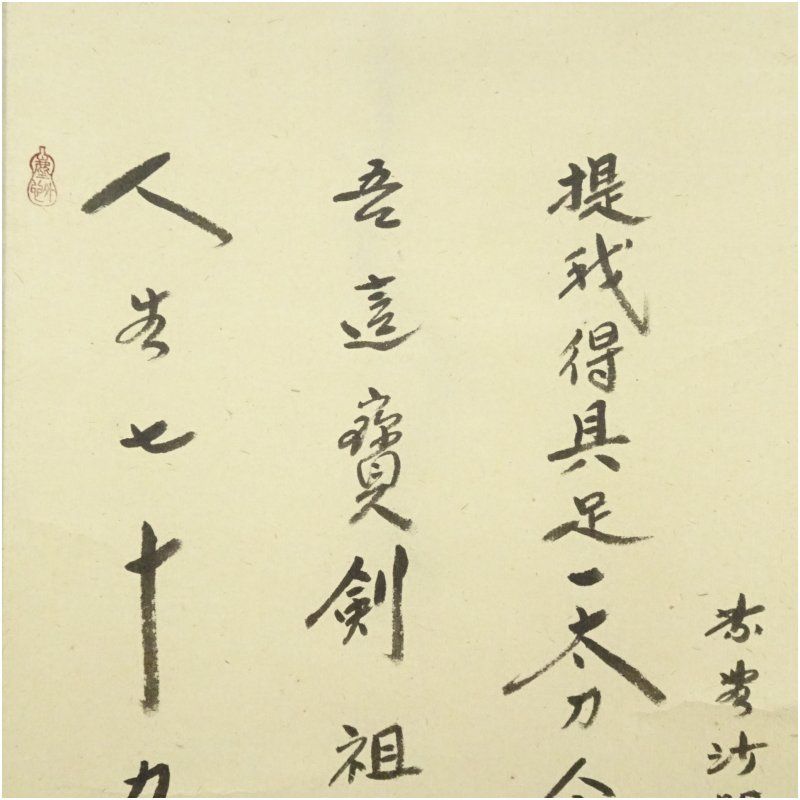 人生七十力
吾這寶劍祖
提我得具足一太刀今
沙